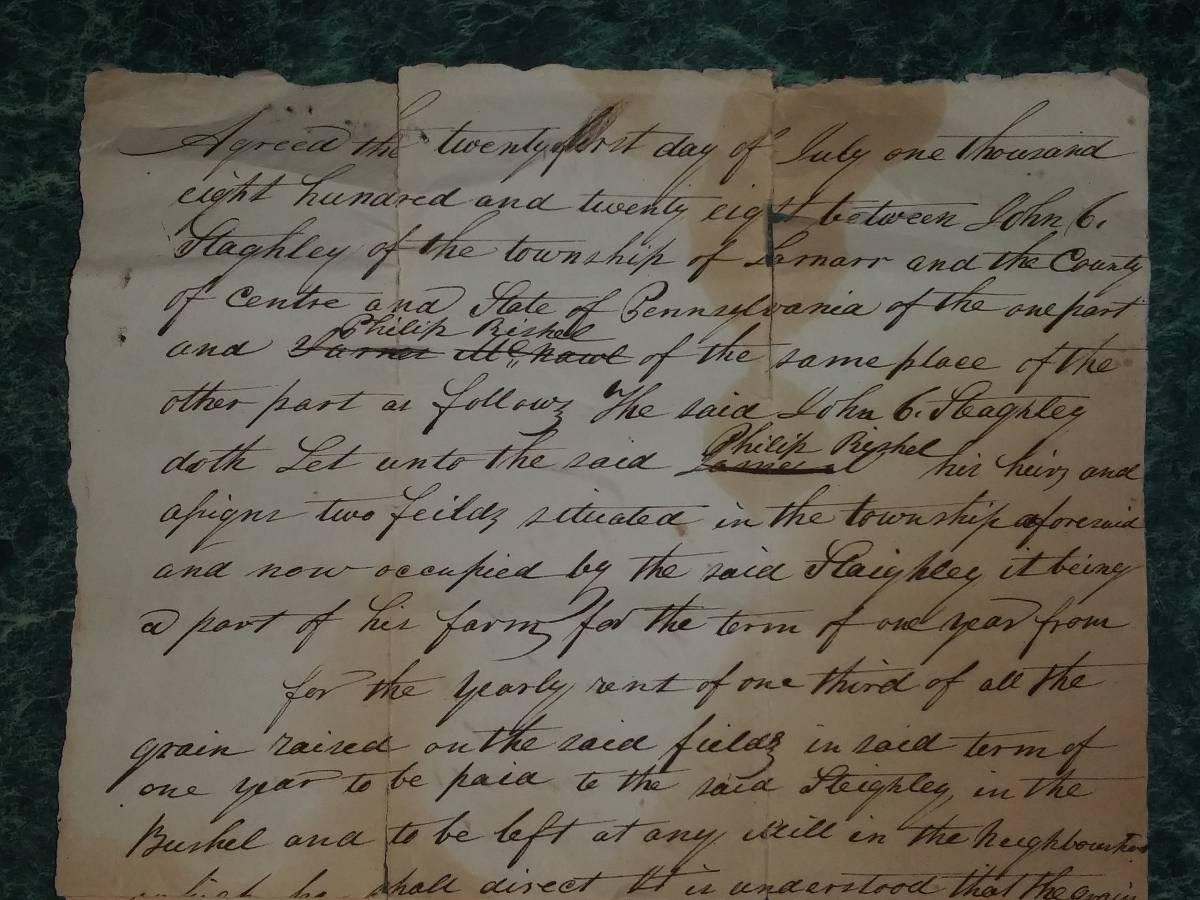 Agreed the twenty first day of July one thousand
eight hundred and twenty eight between John C.
Staghley of the township of Lamarr and the County
of Centre and State of Pennsylvania of the one part
Philip Rishel
and James of the same place of the
other part as follows The said John C. Steaghley
Philip Rishel
doth Let unto the said his heirs and
assigns two feilds situated in the township aforesaid
and now occupied by the said Staighley it being
a part of his farm for the term of one year from
for the yearly rent of one third of all the
grain raised on the said fields in said term of
one year to be paid to the said Steighley in the
Bushel and to be left at any Mill in the Neighbourhood
which he shall direct It is understood that the grain